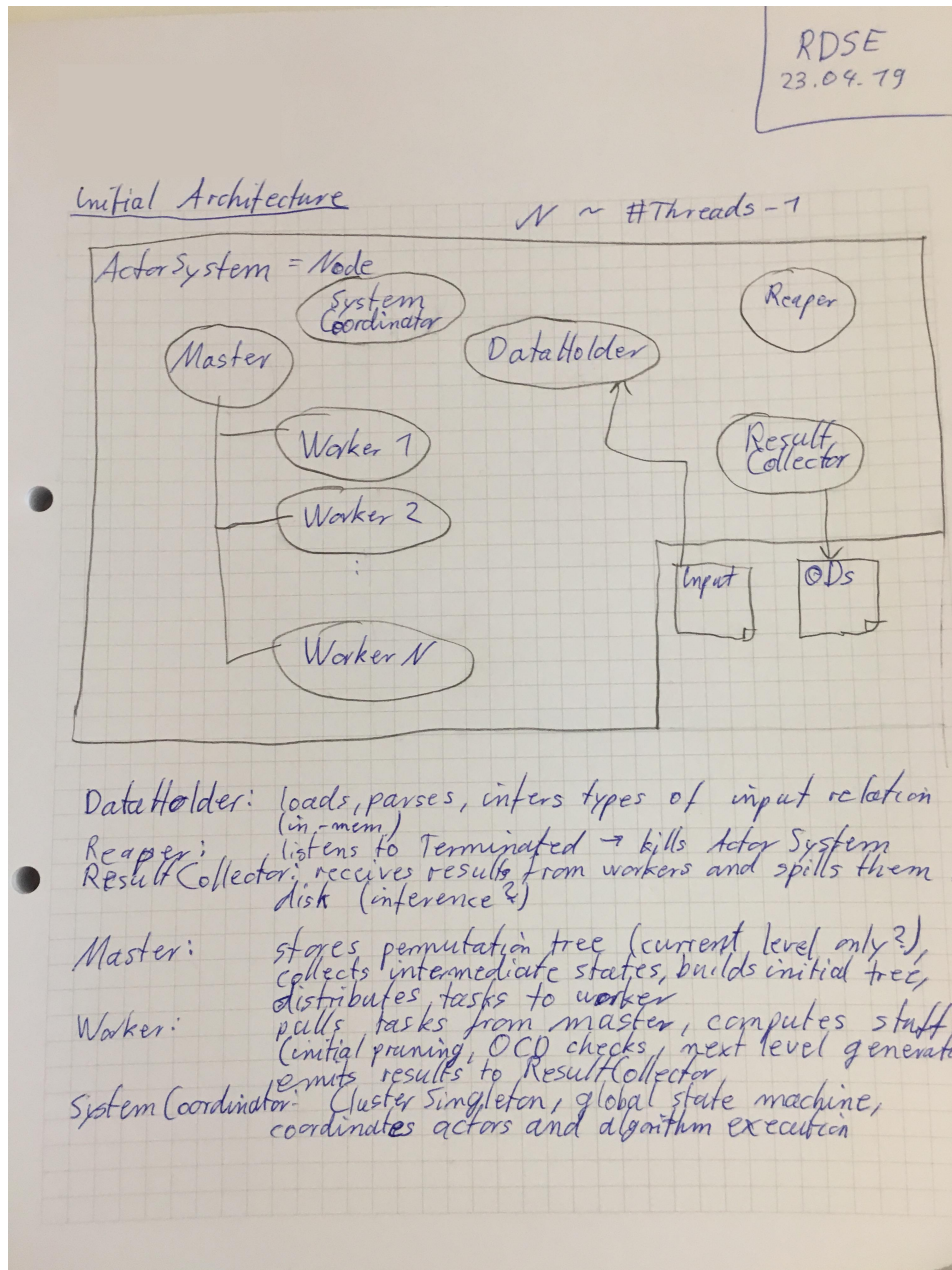 RDSE
23.04.19
Initial Architecture
N ~ #Threads-1
ActorSystem = Node
System
Coordinator
Reaper
Master
DataHolder
Worker 1
Result
Collector
Worker 2
:
Input
ODs
Worker N
DataHolder: loads, parses, infers types of input relation
(in-mem)
Reaper: listens to Terminated → kills Actor System
ResultCollector: receives results from workers and spills them
disk (inference?)
Master: stores permutation tree (current level only?),
collects intermediate states, builds initial tree,
distributes tasks to worker
Worker: pulls tasks from master, computes stuff
(initial pruning, OCD checks, next level generat
emits results to ResultCollector
System Coordinator: Cluster Singleton, global state machine,
coordinates actors and algorithm execution